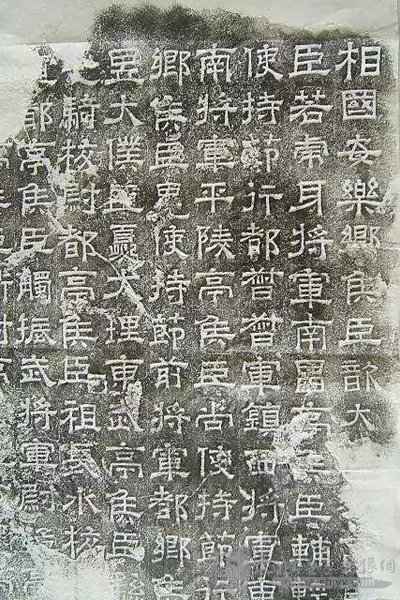 相國安樂鄉侯臣歆太
臣若虎牙將軍南昌亭侯臣輔輕
使持節行都督督軍鎮西將軍東
南將軍平陵亭侯臣尚使持節行
鄉侯臣晃使持節前將軍都鄉侯
昱太僕臣夔大理東武亭侯臣
騎校尉都亭侯臣祖長水校
都亭侯臣觸振武將軍尉